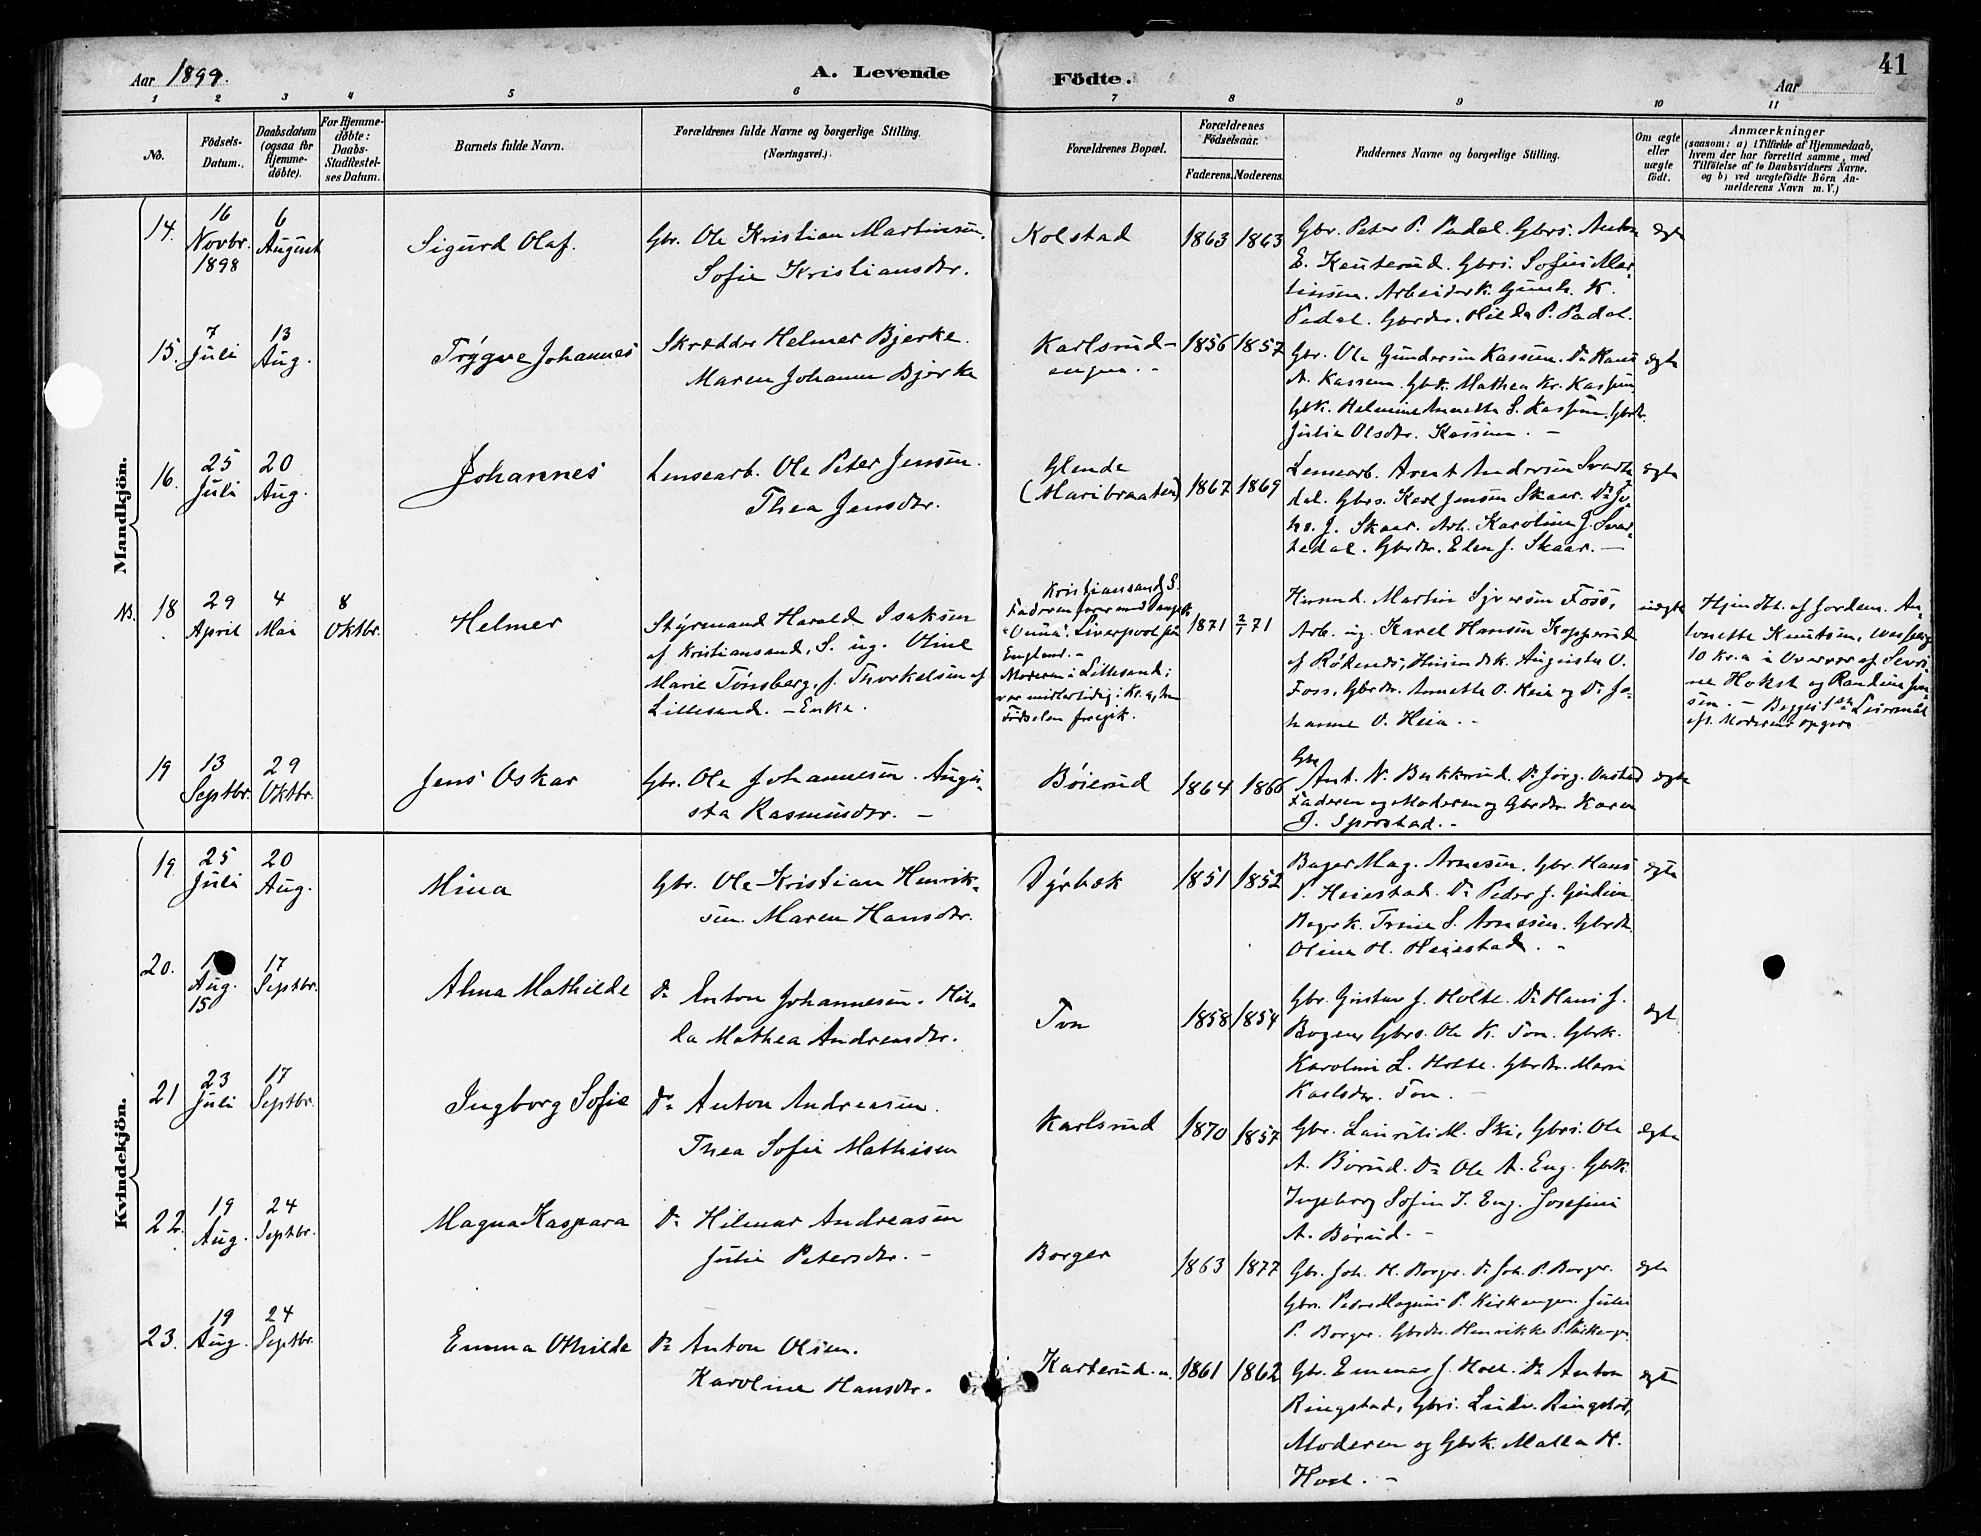 Aar 1899.
A. Levende
Födte.
Aar
41
1 2 3 4 5 6 7 8 9 10 11
No.
Födsels-
Datum.
Daabsdatum
(ogsaa for
Hjemme-
döbte).
For Hjemme-
döbte:
Daabs-
Stadfæstel-
ses Datum.
Barnets fulde Navn.
Forældrenes fulde Navne og borgerlige Stilling.
(Næringsvei.)
Forældrenes Bopæl.
Forældrenes
Födselsaar.
Faderens. Moderens.
Faddernes Navne og borgerlige Stilling.
Om ægte
eller
uægte
födt.
Anmærkninger
(saasom: a) i Tilfælde af Hjemmedaab,
hvem der har forrettet samme, med
Tilföielse af to Daabsvidners Navne.
og b) ved uægtefödte Börn An-
melderens Navn m. V.)
Mandkjön.
14.
16
Novbr.
1898
6
August
Sigurd Olaf.
Gbr. Ole Kristian Martinsen.
Sofie Kristiansdtr.
Kolstad
1863 1863
Gbr. Peter P. Padal. Gbrs. Anton
E. Kenterud. Gbrs. Sofus Mar-
tinsen. Arbeiderk. Gunh. K.
Padal. Gbrdtr. Hilda P. Padal.
ægte
15.
7
Juli
13
Aug.
Trÿgve Johannes
Skrædder Helmer Bjerke.
Maren Johanne Bjerke
Karlsrud-
engen. -
1856 1857
Gbr. Ole Gundersen Kassen. Do Hans
A. Kassen. Gbk. Mathea Kr. Kassen
Gbk. Helmine Annette S. Kassen. Gbrdtr.
Julie Olsdtr. Kassen. -
ægte
16.
25
Juli
20
Aug.
Johannes
Lensearb. Ole Peter Jensen.
Thea Jensdtr.
Glende
(Maribraaten)
1867 1869
Lensearb. Arent Andersen Svarte
dal. Gbrs. Karl Jensen Skaar. Do Jo-
hs. J. Skaar. Arb. Karoline J. Svar-
tedal. Gbrdtr. Elen J. Skaar. -
ægte
NB. 18
29
April
4
Mai
8
Oktbr.
Helmer
Styrmand Harald Isaksen
af Kristiansand, S. ug. Oline
Marie Tönsberg, f. Thorkelsen af
Lillesand. - Enke.
Kristiansand S.
Faderen farer med
Liverpool
England. -
Moderen i Lillesand;
var midlertidig i Kr.a, hvor
Födselen foregik.
1871 2/1 71
Husmd. Martin Syversen Foss,
Arb. ug. Karel Hansen Kopperud
af Rödenes, Husmdsk. Auguste O.
Foss, Gbrdtr. Annette O. Heia og Do Jo-
hanne O. Heia. -
uægte
Hjmdbt. af Jordem. An-
tonette Knutsen,
10 Kr.a i Overvær af Sevri-
ne Hokst og Randine Jen-
sen. - Begges 1ste Leiermaal
eft. Moderens Opgave
19
13
Septbr.
29
Oktbr.
Jens Oskar
Gbr. Ole Johannesen. Augu-
sta Rasmusdtr. -
Böierud
1864 1866
Gbr.
Ant. N. Bukkerud. Do Jörg. Onstad
Faderen og Moderen og Gbrdtr. Karen
J. Sperstad. -
ægte
Kvindekjön.
19
25
Juli
20
Aug.
Mina
Gbr. Ole Kristian Henrik-
sen. Maren Hansdtr.
Dyrbæk
1851 1852
Bager Mag. Arnesen. Gbr. Hans
P. Heiestad. Do Peder J.
Bagrk. Trine S. Arnesen. Gbrdtr.
Oline H. Heiestad. -
ægte
20.
Aug.
15
17
Septbr.
Alma Mathilde
Do Anton Johannesen. Hil-
da Mathea Andreasdtr.
Ton
1858 1854
Gbr. Gustav J. Holte. Do Hans J.
Bogen Gbrs. Ole K. Ton. Gbrk.
Karoline L. Holte. Gbrdtr. Marie
Karlsdtr. Ton. -
ægt
21
23
Juli
17
Septbr.
Ingborg Sofie
Do Anton Andreasen.
Thea Sofie Mathisen
Karlsrud
1870 1857
Gbr. Laurits M. Ski, Gbrs. Ole
A. Börud. Do Ole A. Eng. Gbrk.
Ingeborg Sofie I. Eng. Josefine
A. Börud. -
ægte
22.
19
Aug.
24
Septbr.
Magna Kaspara
Do Hilmar Andreasen
Julie Petersdtr. -
Borger
1863 1877
Gbr. Joh. H. Borger. Do Joh. P. Borger.
Gbrs. Peder Magnus P. Kirkengen. Julie
P. Borger. Gbrdtr. Henrikke P. Kirkengen
ægte
23.
19
Aug.
24
Septbr.
Emma Othilde
Do Anton Olsen.
Karoline Hansdtr.
Karterud. u.
1861 1862
Gbr. Emmar J. Hoel. Do Anton
Ringstad, Gbrs. Ludv. Ringstad,
Moderen og Gbrk. Malla H.
Hoel. -
ægte